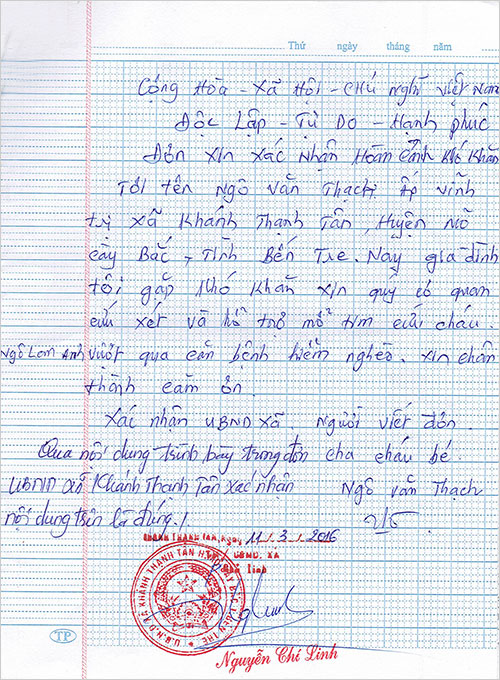 Thứ ngày tháng năm
Cộng Hòa - Xã Hội - Chủ nghĩ việt Nam
Độc Lập - Tự Do - Hạnh phúc
Đơn xin xác nhận Hoàn cảnh khó khăn
Tôi tên Ngô văn Thạch, Ấp vĩnh
trị xã Khánh Thạnh Tân, Huyện mỏ
cày Bắc, Tỉnh Bến Tre. Nay gia đình
tôi gặp khó khăn xin quý cơ quan
cứu xét và hỗ trợ mổ tim cứu cháu
Ngô Lam Anh vượt qua căn bệnh hiểm nghèo. xin chân
thành cảm ơn.
Xác nhận UBND xã. Người viết đơn.
Qua nội dung trình bày trong đơn cha cháu bé.
UBND xã Khánh Thạnh Tân xác nhận Ngô văn Thạch
nội dung trên là đúng./.
KHÁNH THẠNH TÂN, Ngày 11/3/2016
UBND. XÃ
U.B.N.D XÃ KHÁNH THẠNH TÂN H. MỎ CÀY BẮC T. BẾN TRE
Nguyễn Chí Linh
TP